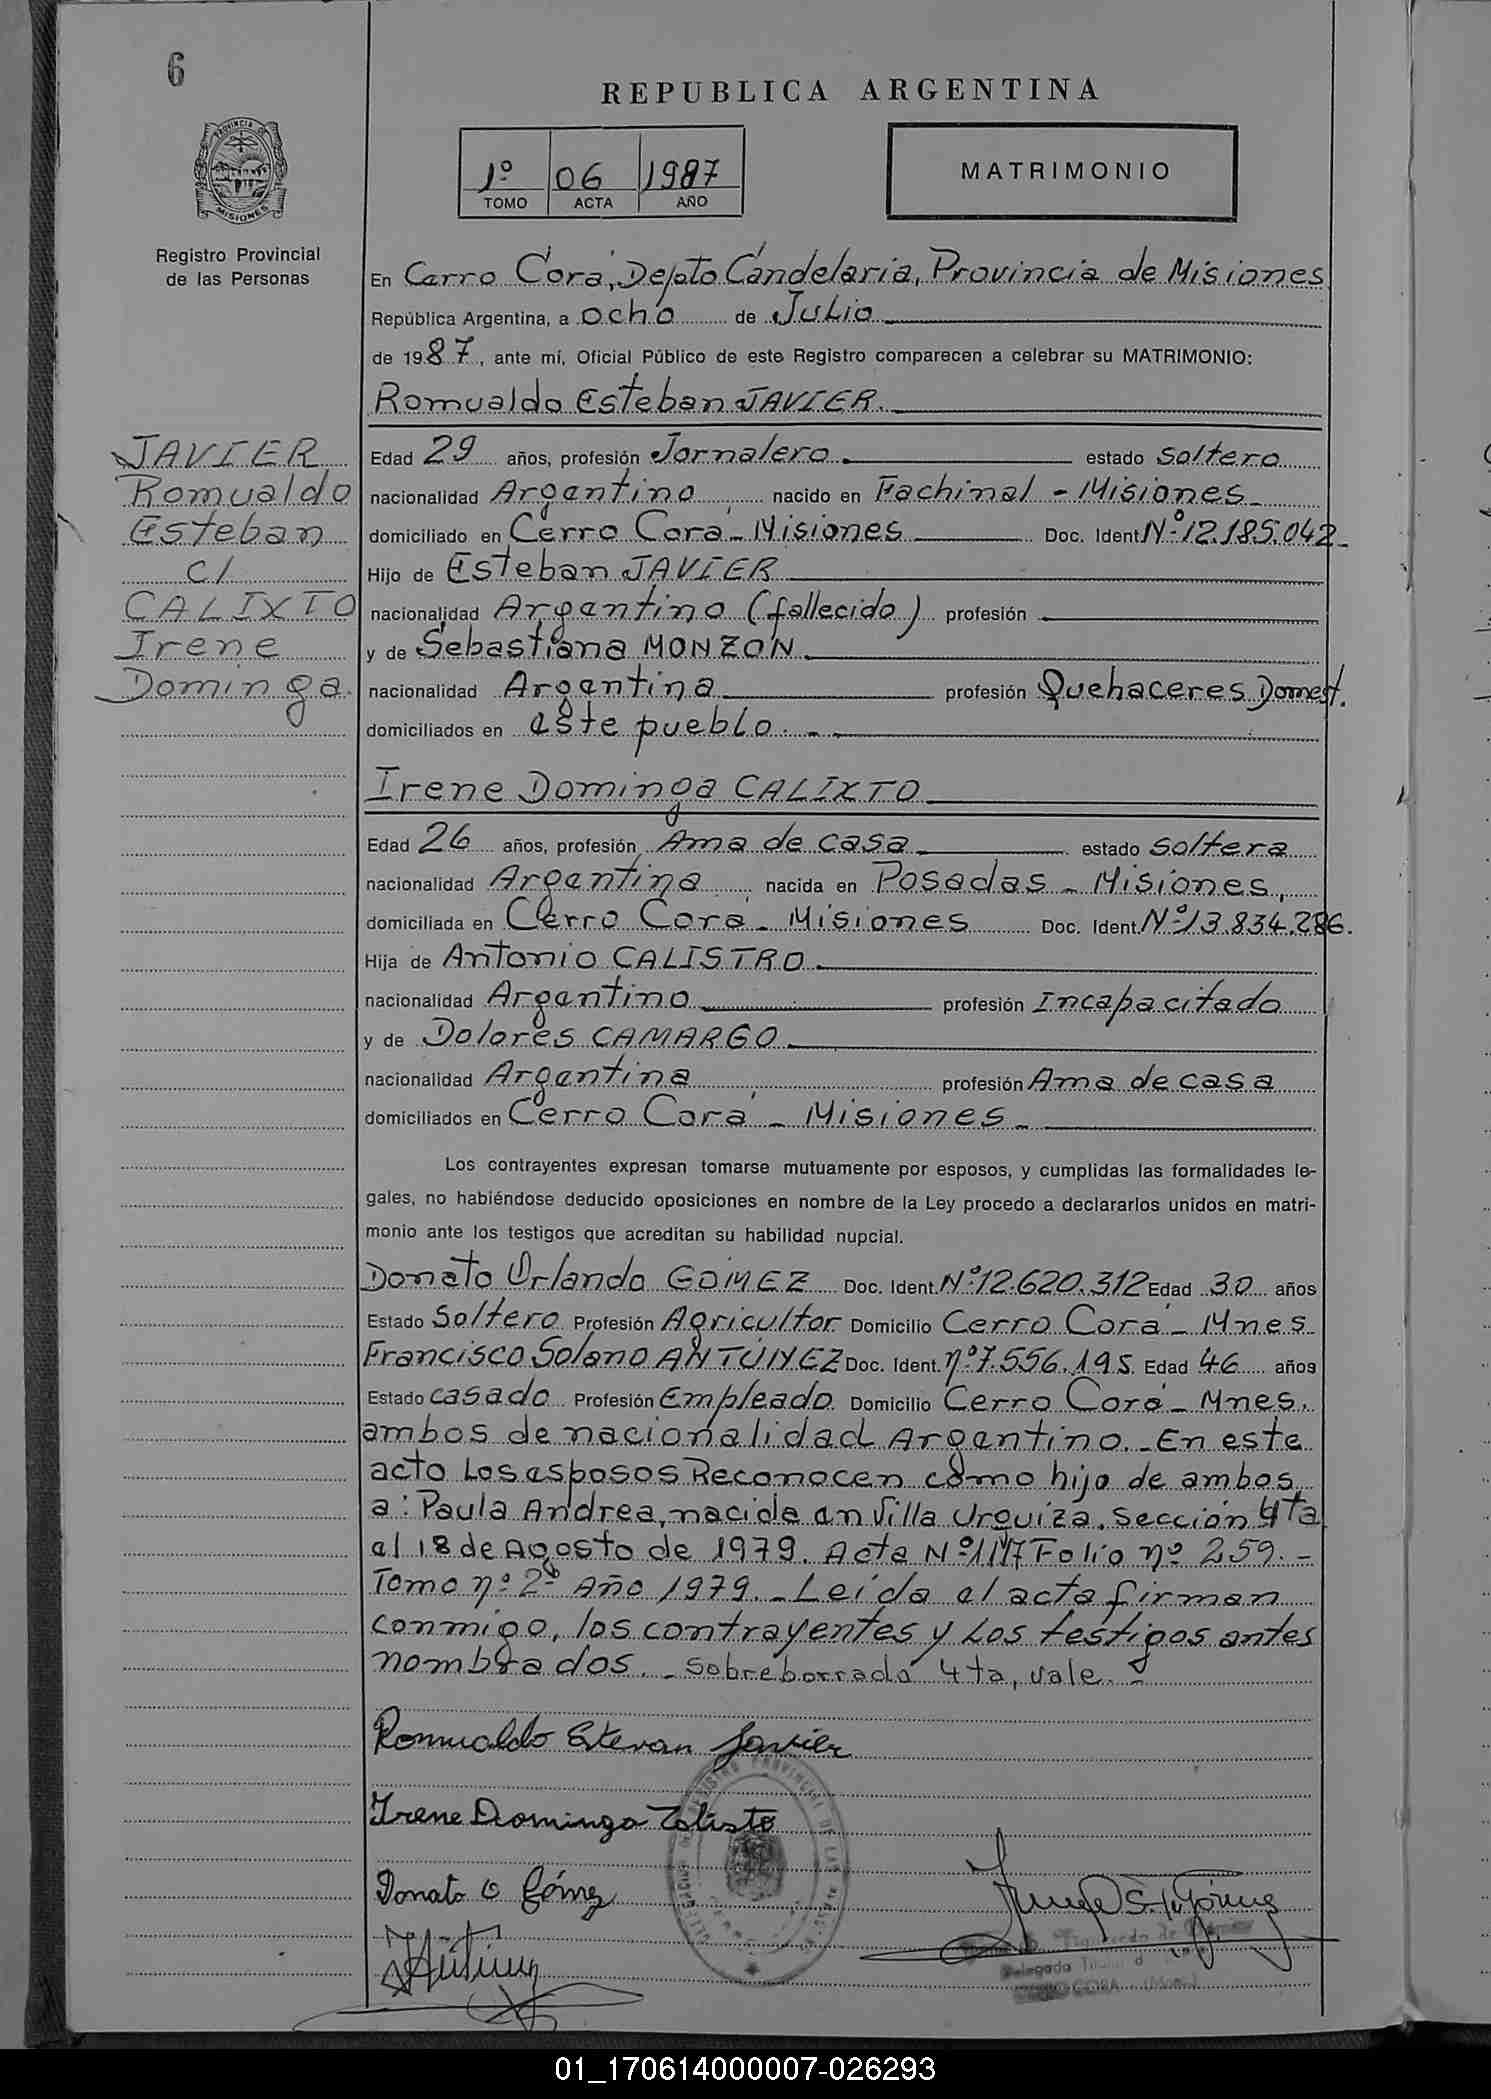 6
REPUBLICA ARGENTINA
PROVINCIA DE
MISIONES
1º 06 1987
TOMO ACTA AÑO
MATRIMONIO
Registro Provincial
de las Personas
En Cerro Corá, Depto Candelaria, Provincia de Misiones
República Argentina, a ocho de Julio
de 1987, ante mí, Oficial Público de este Registro comparecen a celebrar su MATRIMONIO:
Romualdo Esteban JAVIER.
JAVIER
Romualdo
Esteban
c/
CALIXTO
Irene
Dominga.
Edad 29 años, profesión Jornalero. estado soltero
nacionalidad Argentino nacido en Fachinal - Misiones
domiciliado en Cerro Corá - Misiones Doc. Ident. Nº 12.185.042
Hijo de Esteban JAVIER
nacionalidad Argentino (fallecido) profesión
y de Sebastiana MONZÓN
nacionalidad Argentina profesión Quehaceres Domest.
domiciliados en este pueblo. -
Irene Dominga CALIXTO
Edad 26 años, profesión Ama de casa estado soltera
nacionalidad Argentina nacida en Posadas - Misiones,
domiciliada en Cerro Corá - Misiones Doc. Ident. Nº 13.834.286.
Hija de Antonio CALISTRO
nacionalidad Argentino profesión Incapacitado
y de Dolores CAMARGO
nacionalidad Argentina profesión Ama de casa
domiciliados en Cerro Corá - Misiones -
Los contrayentes expresan tomarse mutuamente por esposos, y cumplidas las formalidades le-
gales, no habiéndose deducido oposiciones en nombre de la Ley procedo a declararlos unidos en matri-
monio ante los testigos que acreditan su habilidad nupcial.
Donato Orlando GOMEZ Doc. Ident. Nº 12.620.312 Edad 30 años
Estado Soltero Profesión Agricultor Domicilio Cerro Corá - Mnes
Francisco Solano ANTÚNEZ Doc. Ident. nº 7.556.195. Edad 46 años
Estado casado Profesión Empleado Domicilio Cerro Corá - Mnes.
ambos de nacionalidad Argentino. - En este
acto Los esposos Reconocen como hijo de ambos
a: Paula Andrea, nacida en Villa Urquiza. Sección 4ta
el 18 de Agosto de 1979. Acta Folio nº 259. -
Tomo nº 2º Año 1979. - Leída el acta firman
conmigo, los contrayentes y Los testigos antes
nombrados. - Sobreborrado 4ta, vale. -
Romualdo Estevan Javier
Irene Dominga Calisto
Donato O Gómez
REGISTRO PROVINCIAL DE LAS
Delegada
CORA (Mnes.)
01_170614000007-026293